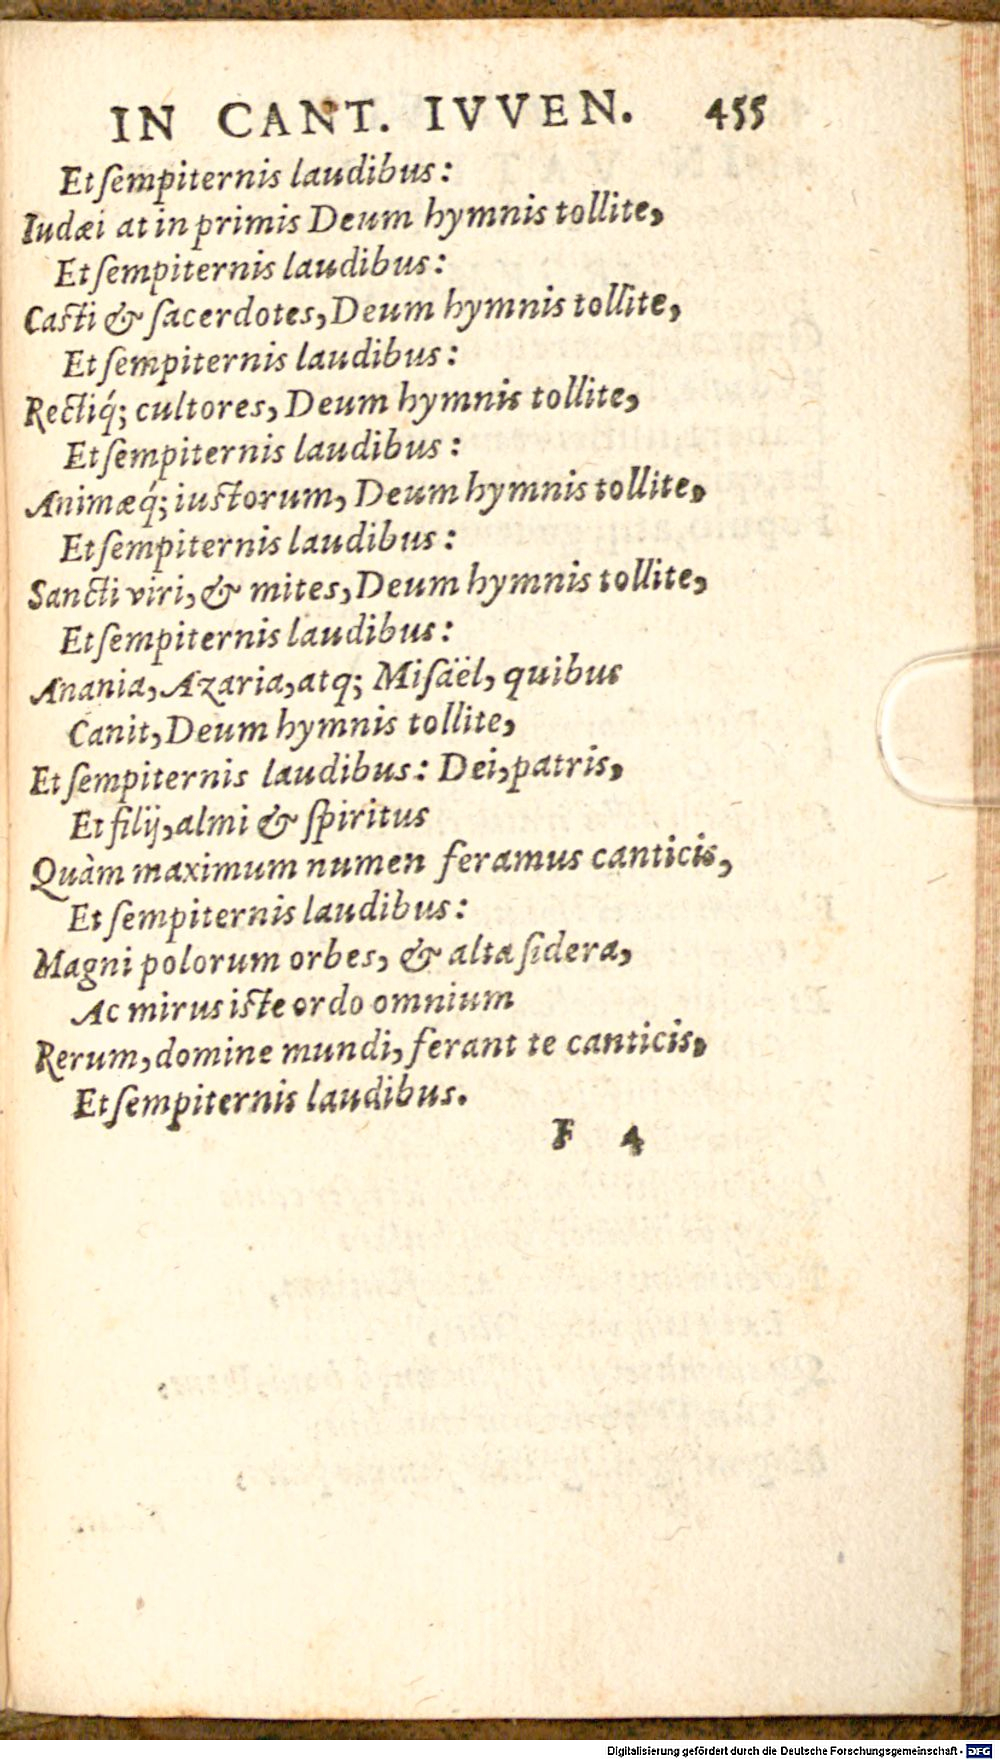 IN CANT. IVVEN. 455
Et ſempiternis laudibus:
Iudæi at in primis Deum hymnis tollite,
Et ſempiternis laudibus:
Caſti & ſacerdotes, Deum hymnis tollite,
Et ſempiternis laudibus:
Rectiq́; cultores, Deum hymnis tollite,
Et ſempiternis laudibus:
Animæq́; iuſtorum, Deum hymnis tollite,
Et ſempiternis laudibus:
Sancti viri, & mites, Deum hymnis tollite,
Et ſempiternis laudibus:
Anania, Azaria, atq; Miſaël, quibus
Canit, Deum hymnis tollite,
Et ſempiternis laudibus: Dei, patris,
Et filij, almi & ſpiritus
Quàm maximum numen feramus canticis,
Et ſempiternis laudibus:
Magni polorum orbes, & alta ſidera,
Ac mirus iſte ordo omnium
Rerum, domine mundi, ferant te canticis,
Et ſempiternis laudibus.
F 4
Digitalisierung gefördert durch die Deutsche Forschungsgemeinschaft - DFG